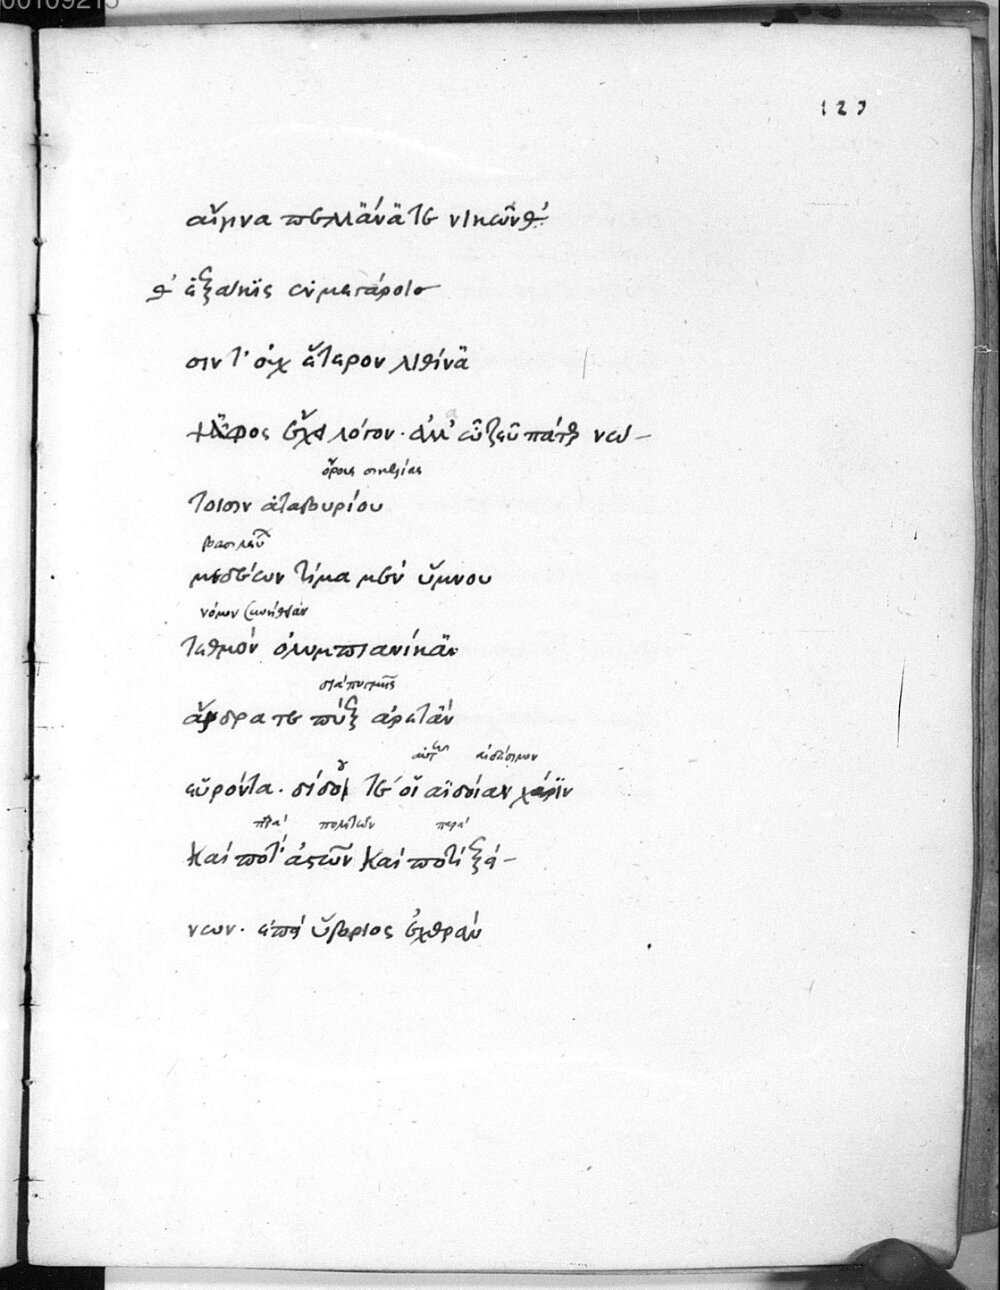 00109215
129
αἴγινα πελλάνά τε νικῶνθ᾽
θ᾽ ἑξάκις ἐν μεγάροισ
σιν τ᾽ οὐχ ἕτερον λιθίνα
ψᾶφος ἔχει λόγον· ἀλλ᾽ ὦ ζεῦ πάτερ νώ-
ὄρους σικελίας
τοισιν ἀταβυρίου
βασιλεῦ
μεδέων τίμα μὲν ὕμνου
νόμον συνήθειαν
τεθμὸν ὀλυμπιονίκαν
διὰ πυγμῆς
ἄνδρα τε πὺξ ἀρετὰν
αὐτῷ αἰδέσιμον
εὑρόντα· δίδου τέ οἱ αἰδοίαν χάριν
παρὰ πολιτῶν παρὰ
καὶ ποτ᾽ ἀστῶν καὶ ποτὶ ξεί-
νων· ἐπεὶ ὕβριος ἐχθρὰν